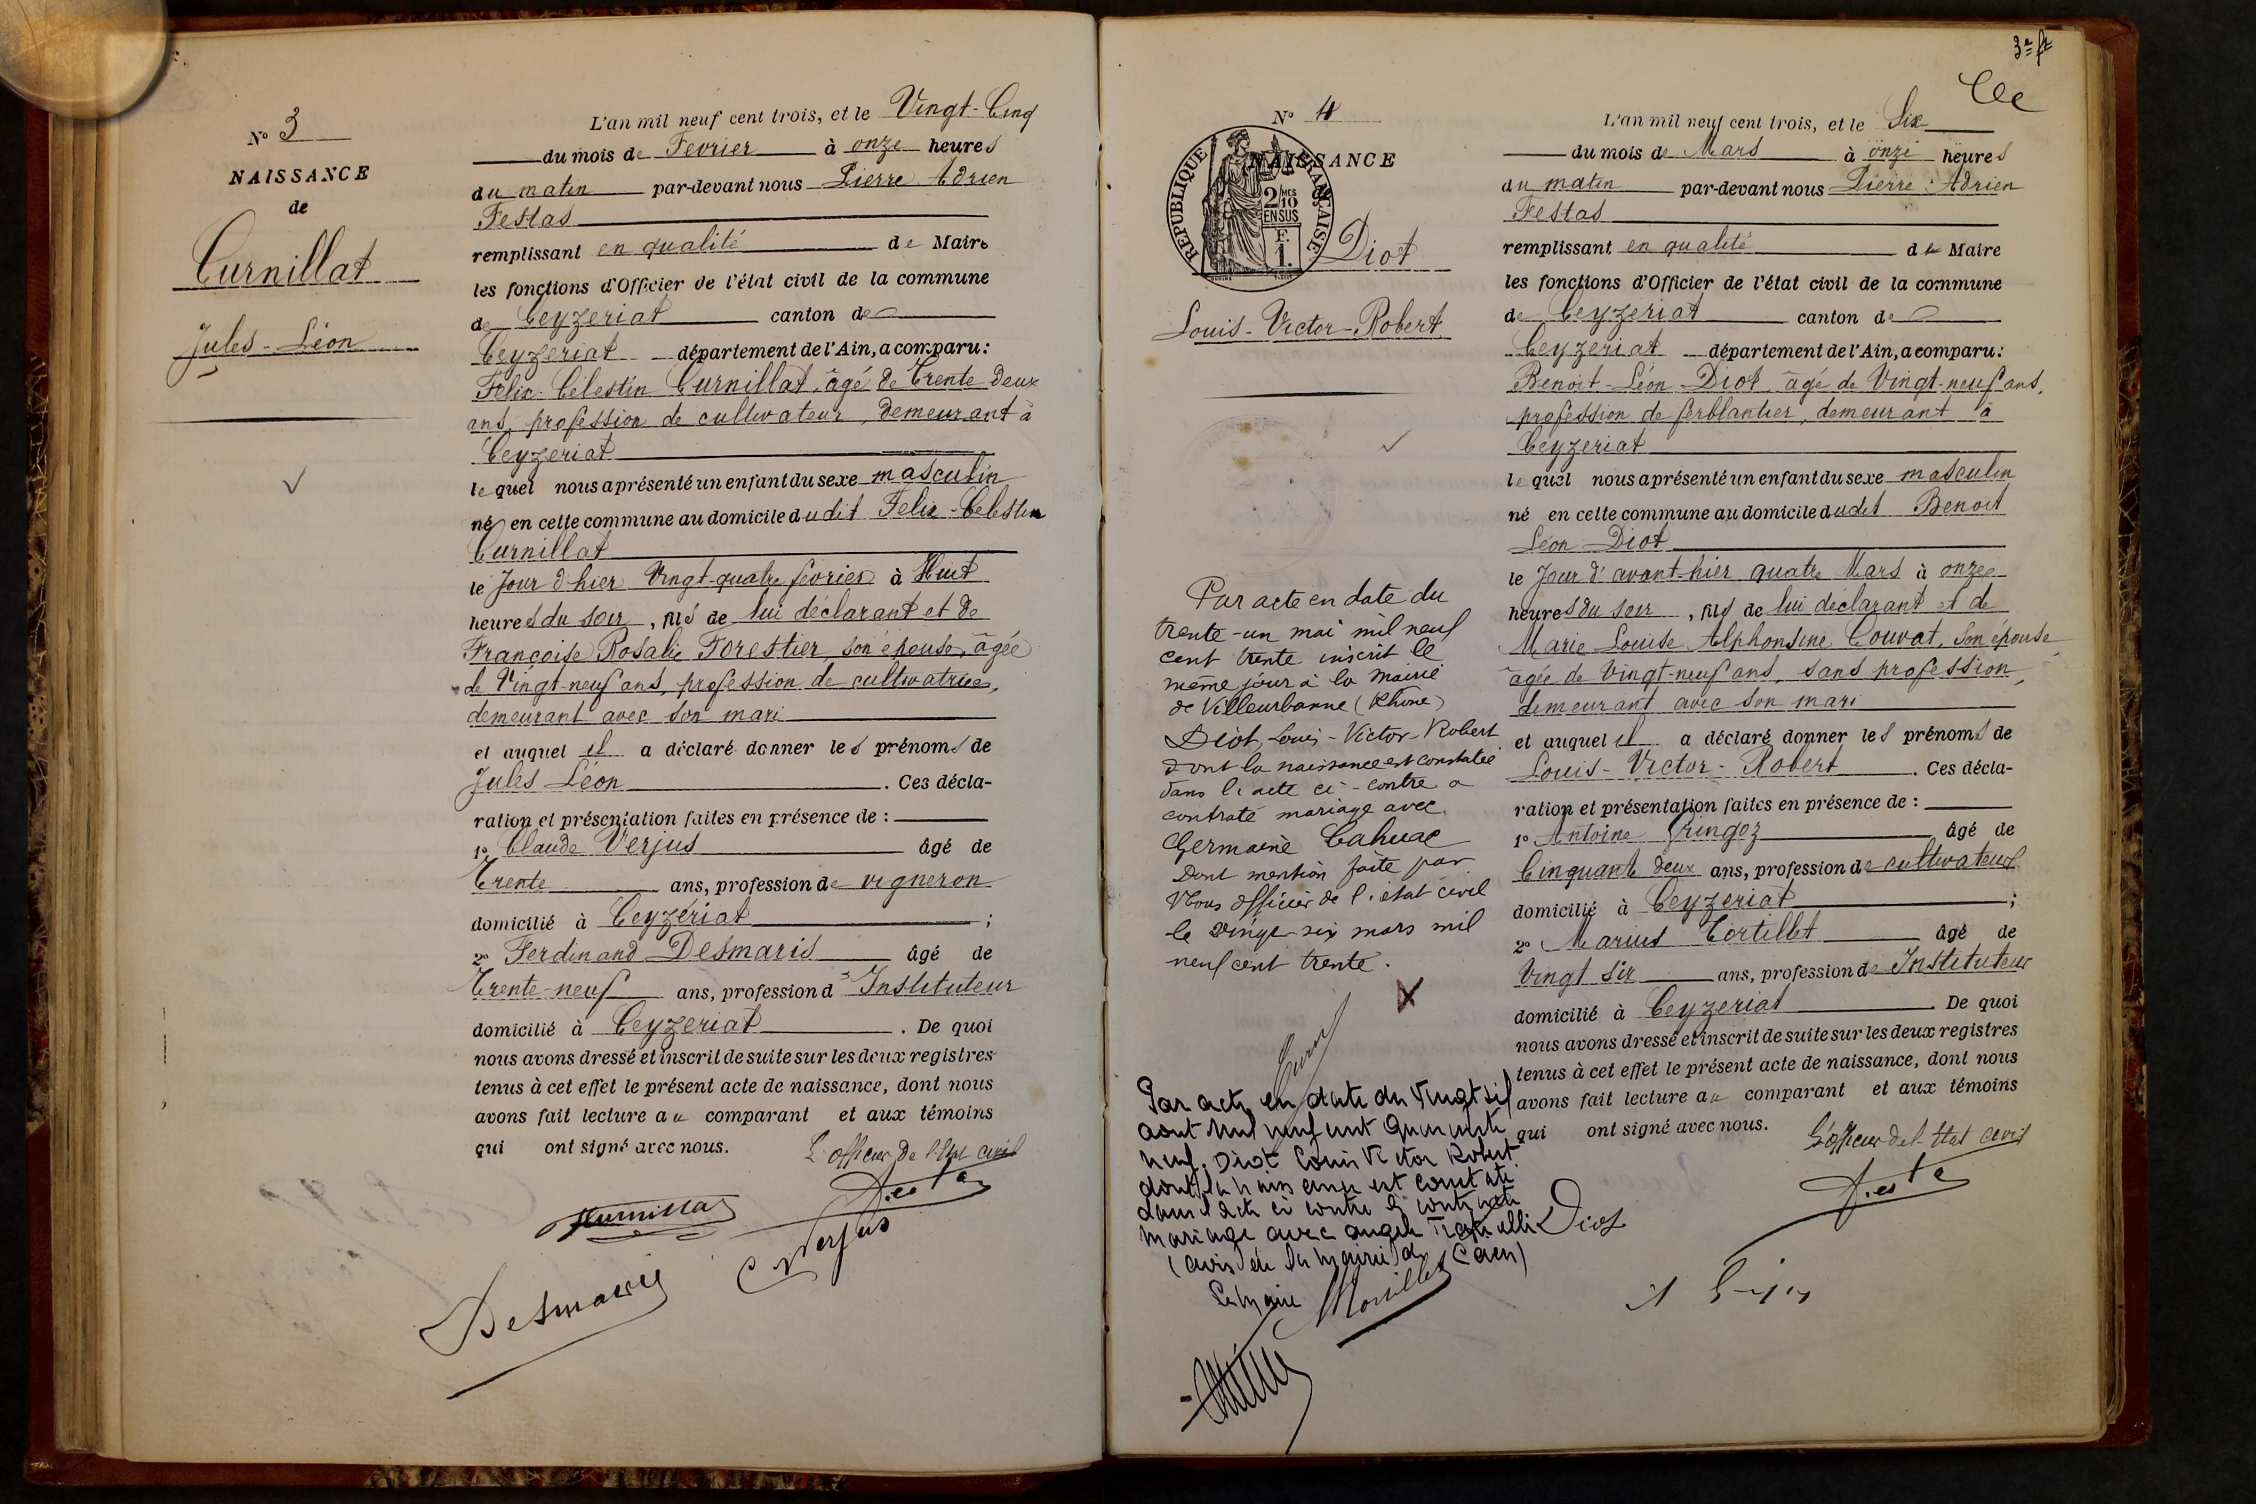 N° 3
NAISSANCE
de
Curnillat
Jules-Léon
L'an mil neuf cent trois, et le Vingt-Cinq
du mois de Fevrier à onze heures
du matin par-devant nous Pierre Adrien
Festas
remplissant en qualité de Maire
les fonctions d'Officier de l'état civil de la commune
de Ceyzeriat canton de
Ceyzeriat département de l'Ain, a comparu :
Felix Célestin Curnillat, âgé de trente deux
ans, profession de cultivateur, demeurant à
Ceyzeriat
lequel nous a présenté un enfant du sexe masculin
né en cette commune au domicile dudit Felix-Celestin
Curnillat
le Jour d'hier Vingt-quatre fevrier à Huit
heures du soir, fils de lui déclarant et de
Françoise Rosalie Forestier, son épouse, âgée
de Vingt-neuf ans, profession de cultivatrice,
demeurant avec son mari
et auquel il a déclaré donner les prénoms de
Jules Léon . Ces décla-
ration et présentation faites en présence de :
1° Claude Verjus âgé de
Trente ans, profession de vigneron
domicilié à Ceyzériat ;
2° Ferdinand Desmaris âgé de
Trente-neuf ans, profession d'Instituteur
domicilié à Ceyzeriat . De quoi
nous avons dressé et inscrit de suite sur les deux registres
tenus à cet effet le présent acte de naissance, dont nous
avons fait lecture au comparant et aux témoins
qui ont signé avec nous. L'officier de l'Etat civil
Curnillat
Festas
C Verjus
Desmaris
3e ft
N° 4
NAISSANCE
RÉPUBLIQUE FRANÇAISE
2 MES
10
EN SUS
F.
1.
Diot
Louis-Victor-Robert
L'an mil neuf cent trois, et le Six
du mois de Mars à onze heures
du matin par-devant nous Pierre Adrien
Festas
remplissant en qualité de Maire
les fonctions d'Officier de l'état civil de la commune
de Ceyzeriat canton de
Ceyzeriat département de l'Ain, a comparu :
Benoit-Léon Diot âgé de Vingt-neuf ans,
profession de ferblantier, demeurant à
Ceyzeriat
lequel nous a présenté un enfant du sexe masculin
né en cette commune au domicile dudit Benoit
Léon Diot
le Jour d'avant-hier quatre Mars à onze
heures du soir, fils de lui déclarant et de
Marie Louise Alphonsine Couvat, son épouse
âgée de Vingt-neuf ans, sans profession,
demeurant avec son mari
et auquel il a déclaré donner les prénoms de
Louis-Victor-Robert . Ces décla-
ration et présentation faites en présence de :
1° Antoine Gringoz âgé de
Cinquante deux ans, profession de cultivateur
domicilié à Ceyzeriat ;
2° Marius Tortillet âgé de
Vingt six ans, profession d'Instituteur
domicilié à Ceyzeriat . De quoi
nous avons dressé et inscrit de suite sur les deux registres
tenus à cet effet le présent acte de naissance, dont nous
avons fait lecture au comparant et aux témoins
qui ont signé avec nous. L'officier de l'Etat civil
Festas
Diot
Par acte en date du
trente-un mai mil neuf
cent trente inscrit le
même jour à la mairie
de Villeurbanne (Rhône)
Diot Louis-Victor-Robert
dont la naissance est constatée
dans l'acte ci-contre a
contracté mariage avec
Germaine Cahuac
Dont mention faite par
Nous officier de l'état civil
le vingt-six mars mil
neuf cent trente.
Par acte en date du Vingt six
aout mil neuf cent quarante
neuf, Diot Louis Victor Robert
dont la naissance est constatée
dans l'acte ci contre a contracté
mariage avec Angele
(avis de la mairie de Caen)
Le maire